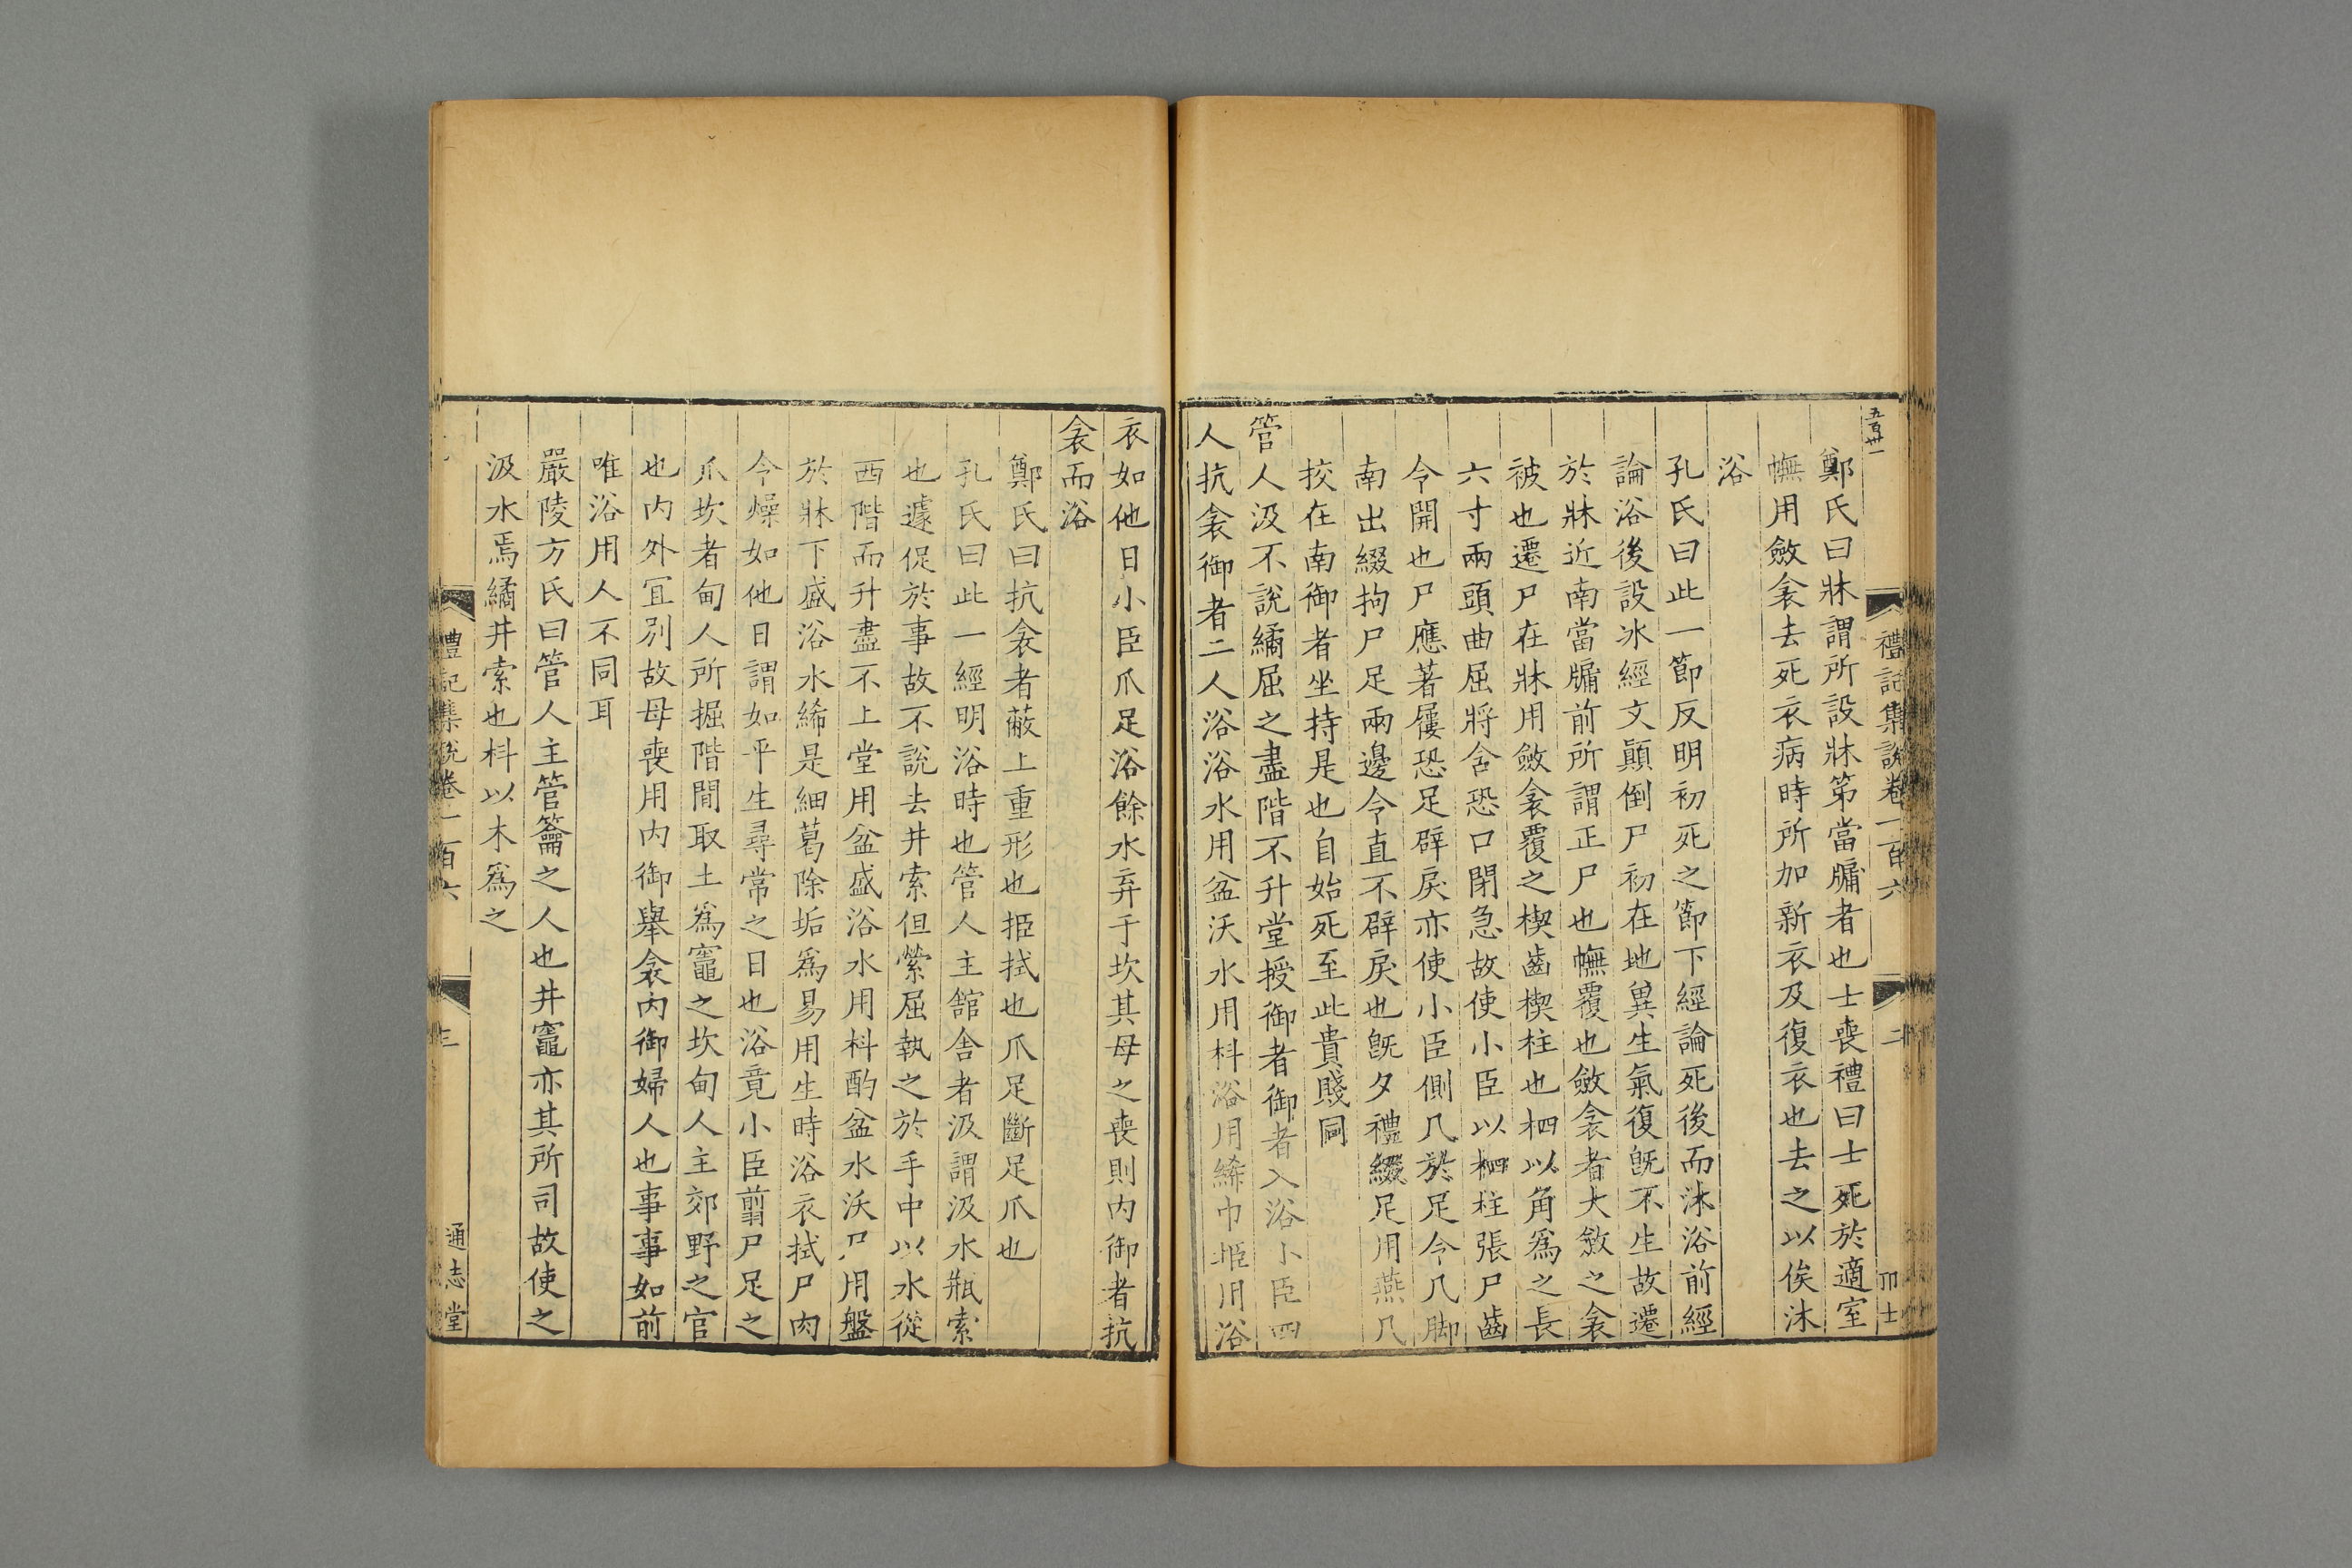 五百卅一
禮記集說卷一百六
二
鄭氏曰牀謂所設牀第當牖者也士喪禮曰士死於適室
幠用斂衾去死衣病時所加新衣及復衣也去之以俟沐
浴
孔氏曰此一節反明初死之節下經論死後而沐浴前經
論浴後設冰經文顚倒尸初在地兾生氣復旣不生故遷
於牀近南當牖前所謂正尸也幠覆也斂衾者大斂之衾
被也遷尸在牀用斂衾覆之楔齒楔柱也柶以角爲之長
六寸兩頭曲屈將含恐口閉急故使小臣以柶柱張尸齒
令開也尸應著屨恐足辟戾亦使小臣側几於足令几脚
南出綴拘尸足兩邊令直不辟戾也旣夕禮綴足用燕几
挍在南御者坐持是也自始死至此貴賤同
管人汲不說繘屈之盡階不升堂授御者御者入浴小臣四
人抗衾御者二人浴浴水用盆沃水用枓浴用絺巾挋用浴
衣如他日小臣爪足浴餘水弃于坎其母之喪則内御者抗
衾而浴
鄭氏曰抗衾者蔽上重形也挋拭也爪足斷足爪也
孔氏曰此一經明浴時也管人主舘舍者汲謂汲水瓶索
也遽促於事故不說去井索但縈屈執之於手中以水從
西階而升盡不上堂用盆盛浴水用枓酌盆水沃尸用盤
於牀下盛浴水絺是細葛除垢爲易用生時浴衣拭尸肉
令燥如他日謂如平生尋常之日也浴竟小臣翦尸足之
爪坎者甸人所掘階閒取土爲竈之坎甸人主郊野之官
也内外冝別故母喪用内御舉衾内御婦人也事事如前
唯浴用人不同耳
嚴陵方氏曰管人主管籥之人也井竈亦其所司故使之
汲水焉繘井索也枓以木爲之
禮記集說卷一百六
三
通志堂